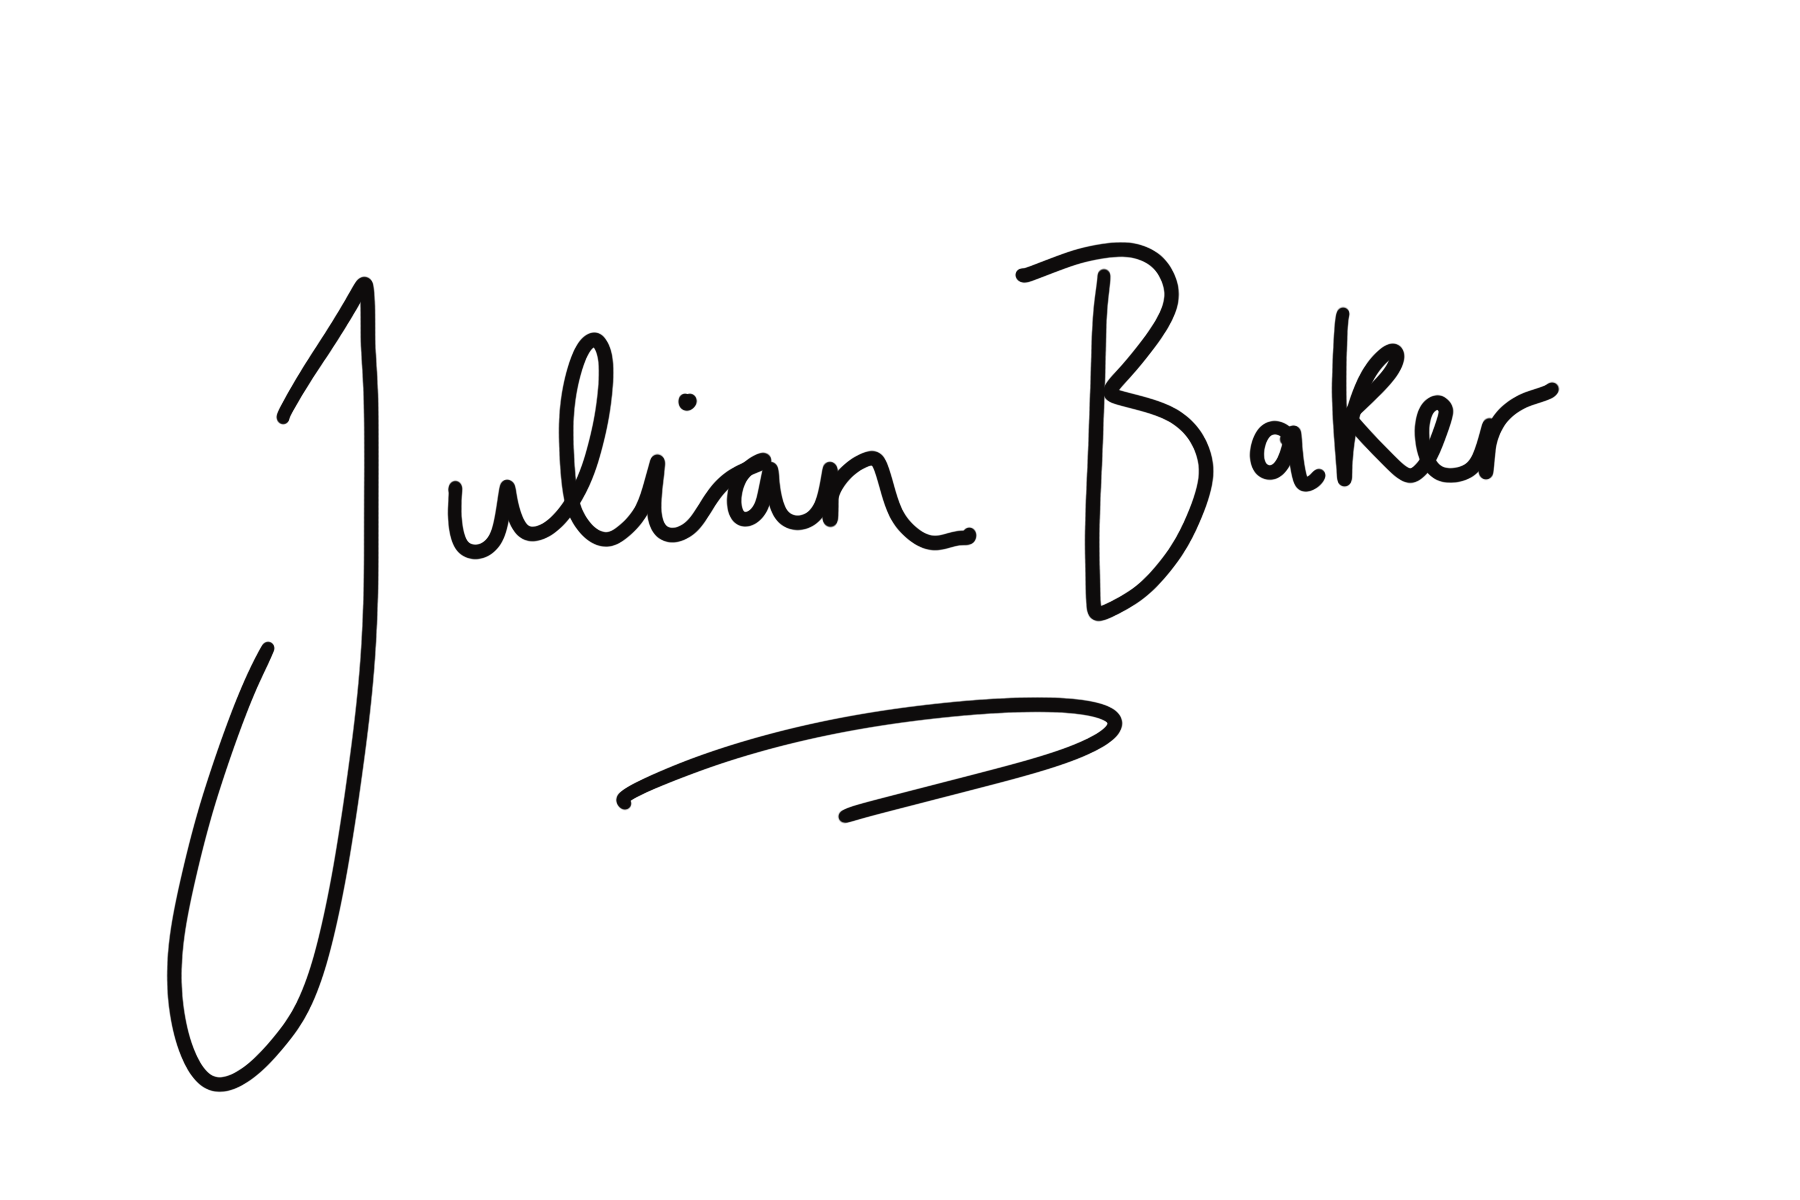 Julian Baker